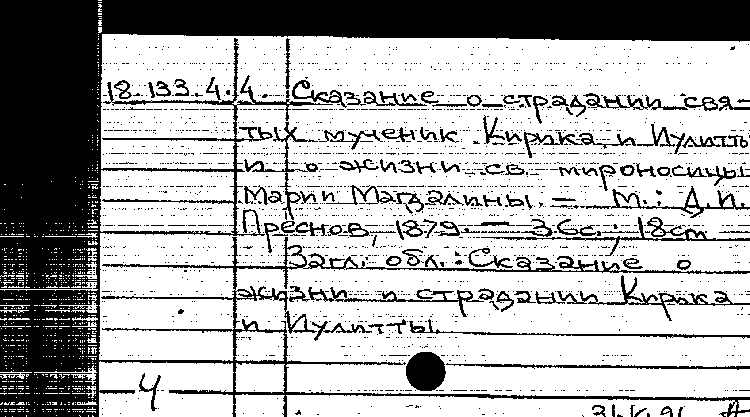 18.133.4.4. Сказание о страдании свя-
тых мученик Кирика и Иулитты
и о жизни св. мироносицы
Марии Магдалины. — М.: Д.И.
Преснов, 1879. — 36с.; 18см
Загл. обл.: Сказание о
жизни и страдании Кирика
и Иулитты.
4